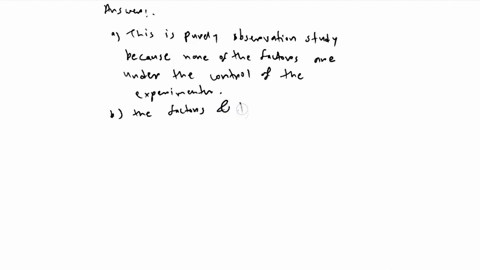 Answer:.
a) This is purely observation study
because none of the factors are
under the control of the
experimenter.
b) the factors &